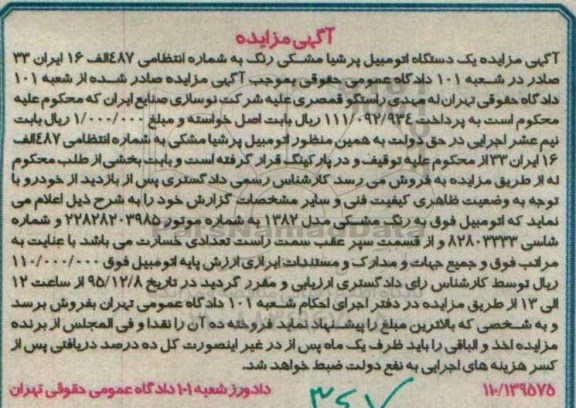 آگهی مزایده
آگهی مزایده یک دستگاه اتومبیل پرشیا مشکی رنگ به شماره انتظامی ۴۸۷الف ۱۶ ایران ۳۳
صادر در شعبه ۱۰۱ دادگاه عمومی حقوقی بموجب آگهی مزایده صادر شده از شعبه ۱۰۱
دادگاه حقوقی تهران له مهدی راستگو قمصری علیه شرکت نوسازی صنایع ایران که محکوم علیه
محکوم است به پرداخت ۱۱۱/۰۹۲/۹۳۴ ریال بابت اصل خواسته و مبلغ ۱/۰۰۰/۰۰۰ ریال بابت
نیم عشر اجرایی در حق دولت به همین منظور اتومبیل پرشیا مشکی به شماره انتظامی ۴۸۷الف
۱۶ ایران ۳۳ از محکوم علیه توقیف و در پارکینگ قرار گرفته است و بابت بخشی از طلب محکوم
له از طریق مزایده به فروش می رسد کارشناس رسمی دادگستری پس از بازدید از خودرو با
توجه به وضعیت ظاهری کیفیت فنی و سایر مشخصات گزارش خود را به شرح ذیل اعلام می
نماید که اتومبیل فوق به رنگ مشکی مدل ۱۳۸۲ به شماره موتور ۲۲۸۲۸۲۰۳۹۸۵ و شماره
شاسی ۸۲۸۰۳۳۳۳ و از قسمت سپر عقب سمت راست تعدادی خسارت می باشد با عنایت به
مراتب فوق و جمیع جهات و مدارک و مستندات ابرازی ارزش پایه اتومبیل فوق ۱۱۰/۰۰۰/۰۰۰
ریال توسط کارشناس رای دادگستری ارزیابی و مقرر گردید در تاریخ ۹۵/۱۲/۸ از ساعت ۱۲
الی ۱۳ از طریق مزایده در دفتر اجرای احکام شعبه ۱۰۱ دادگاه عمومی تهران بفروش برسد
و به شخصی که بالاترین مبلغ را پیشنهاد نماید فروخته ده آن را نقدا و فی المجلس از برنده
مزایده اخذ و الباقی را باید ظرف یک ماه پس از در غیر اینصورت کل ده درصد دریافتی پس از
کسر هزینه های اجرایی به نفع دولت ضبط خواهد شد.
۱۱۰/۱۳۹۵۷۵ دادورز شعبه ۱۰۱ دادگاه عمومی حقوقی تهران